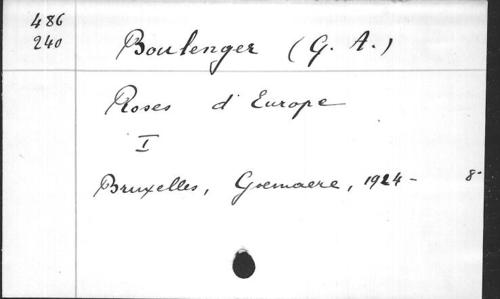 486
240
Boulenger (G. A.)
Roses d'Europe
I
Bruxelles, Goemaere, 1924- 8°